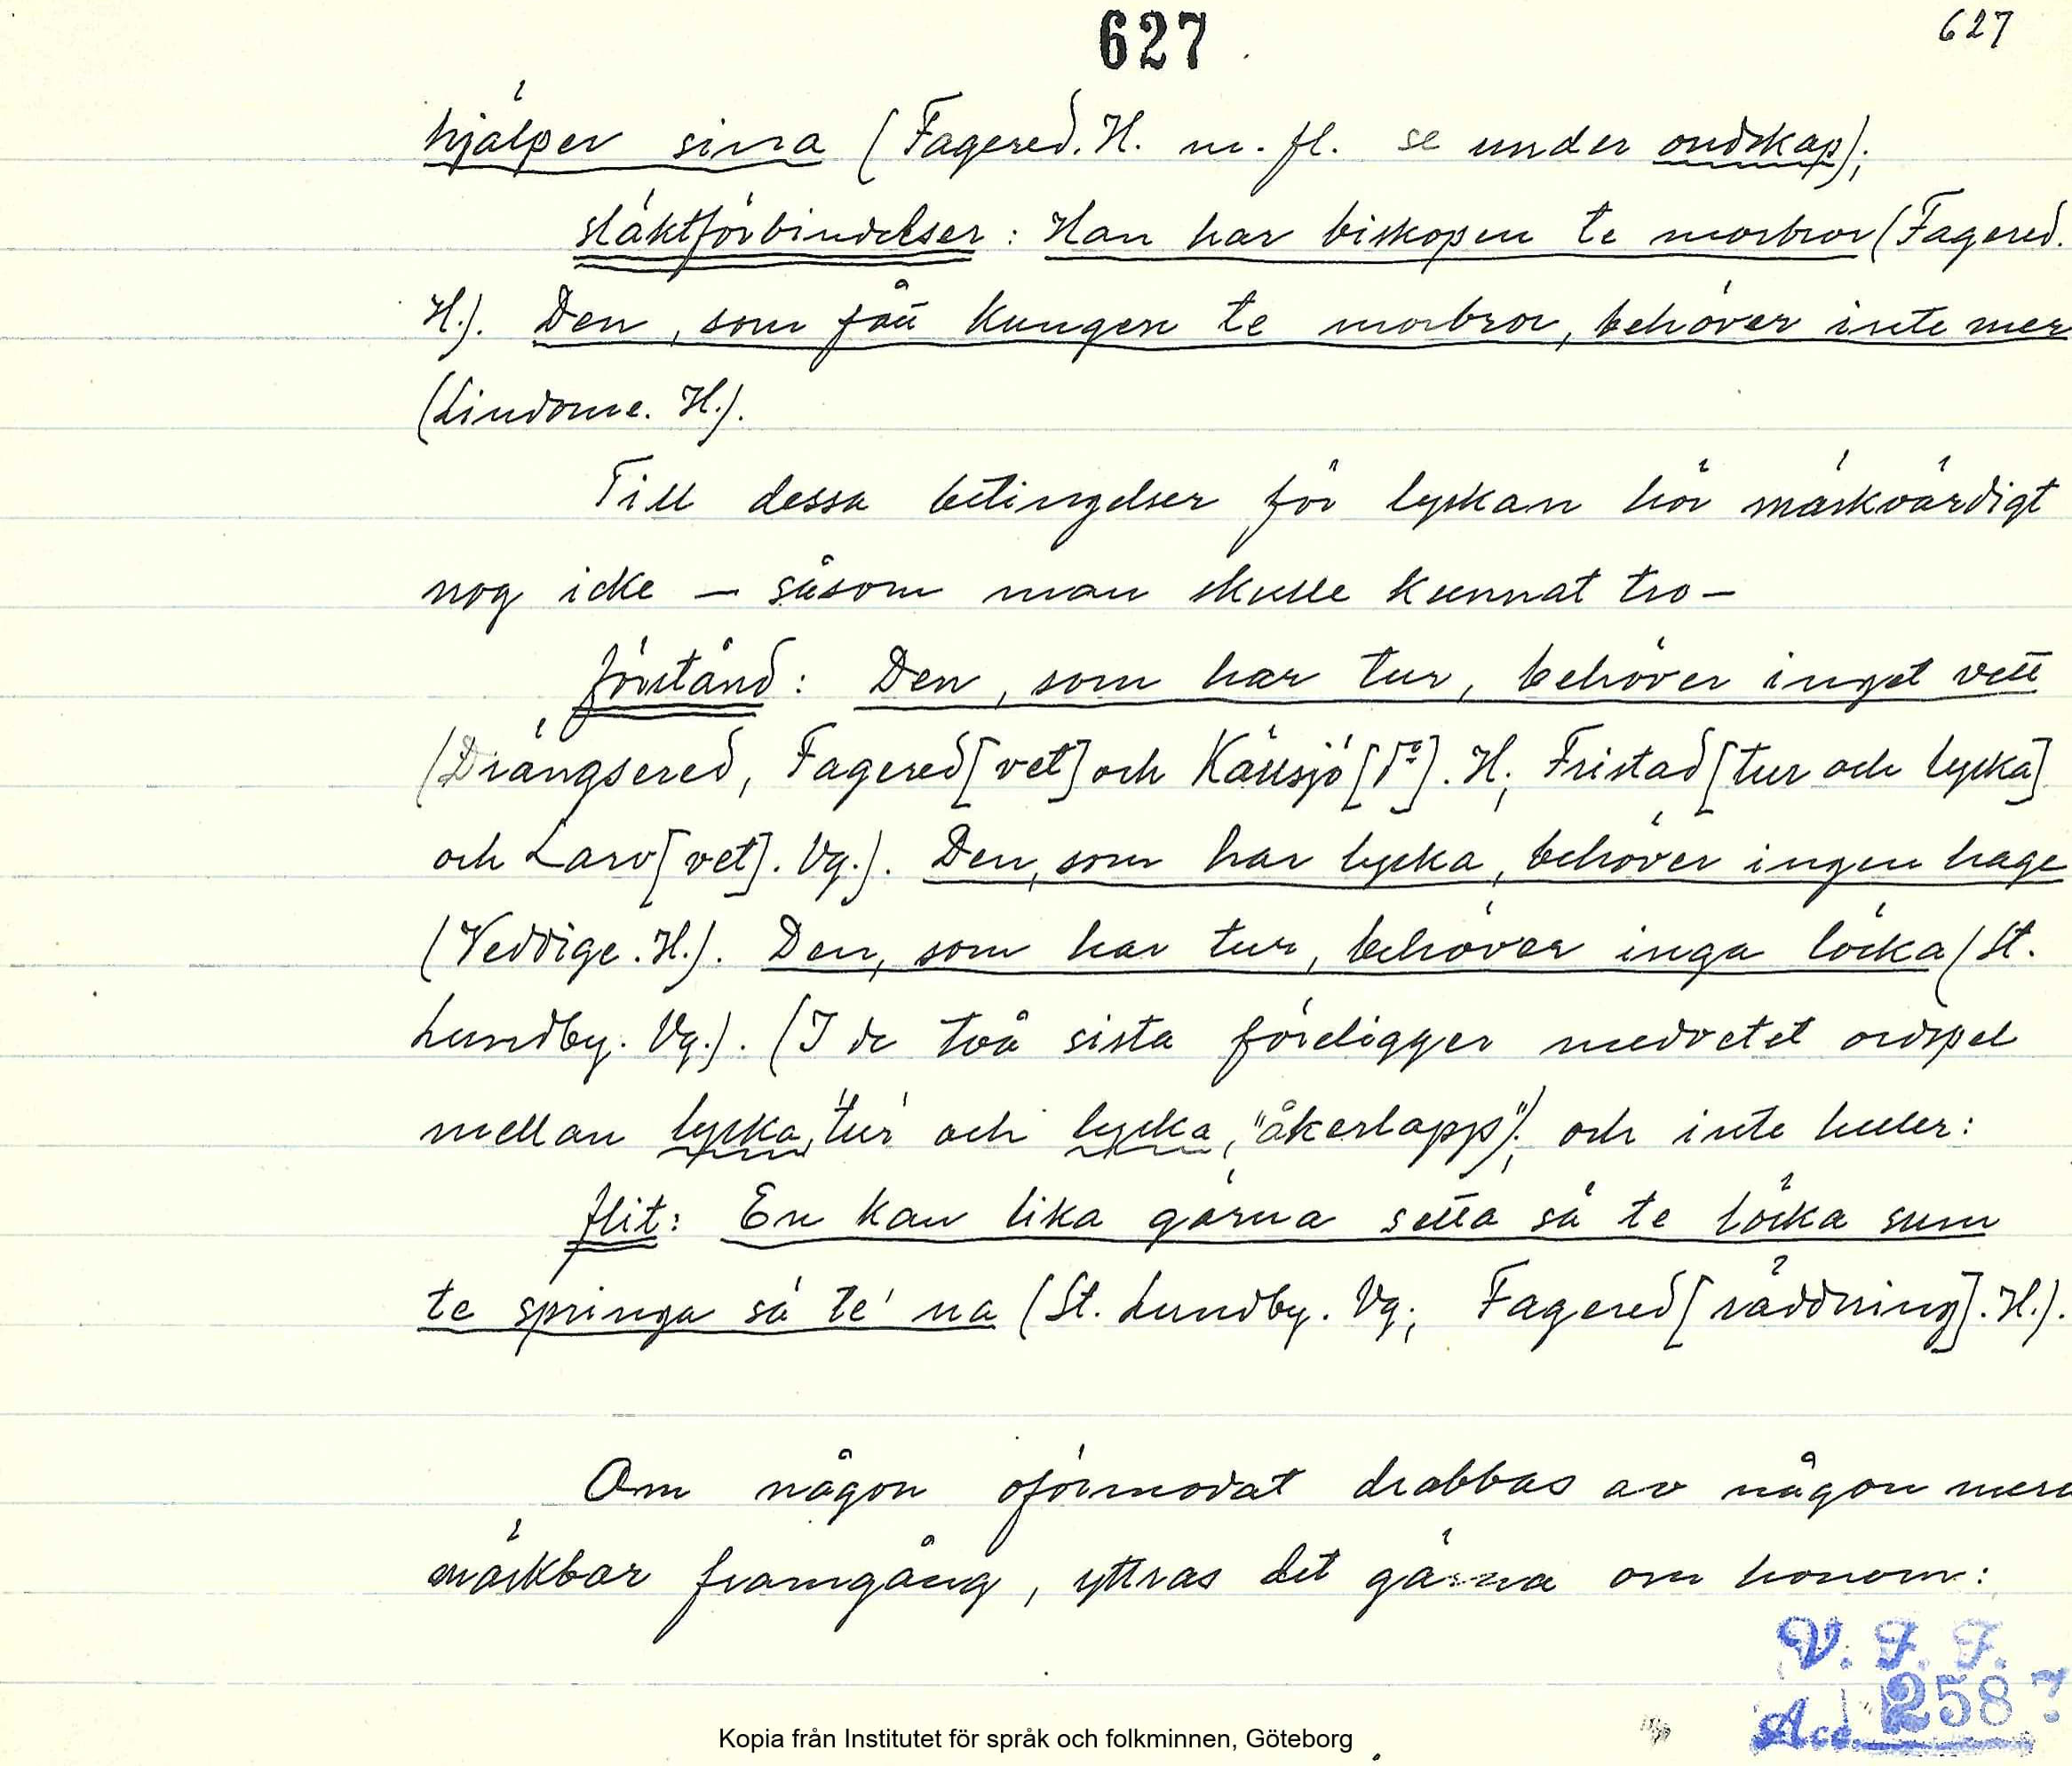 627
627
hjälper sina (Fagered. H. m. fl. se under ondskap);
släktförbindelser: Han har biskopen te morbror (Fagered.
H.). Den, som fått kungen te morbror, behöver inte mer
(Lindome. H.).
Till dessa betingelser för lyckan hör märkvärdigt
nog icke – såsom man skulle kunnat tro –
förstånd: Den, som har tur, behöver inget vett
(Drängsered, Fagered [vet] och Källsjö [d:o]. H; Fristad [tur och lycka]
och Larv [vet]. Vg.). Den, som har lycka, behöver ingen hage
(Veddige. H.). Den, som har tur, behöver inga löcka (St.
Lundby. Vg.). (I de två sista föreligger medvetet ordspel
mellan lycka, "tur" och lycka, "åkerlapp"); och inte heller:
flit: En kan lika gärna setta sä te löcka sum
te springa sä te' na (St. Lundby. Vg; Fagered [räddning]. H.).
Om någon oförmodat drabbas av någon mera
märkbar framgång, yttras det gärna om honom:
V. F. F.
Acc. 258
Kopia från Institutet för språk och folkminnen, Göteborg